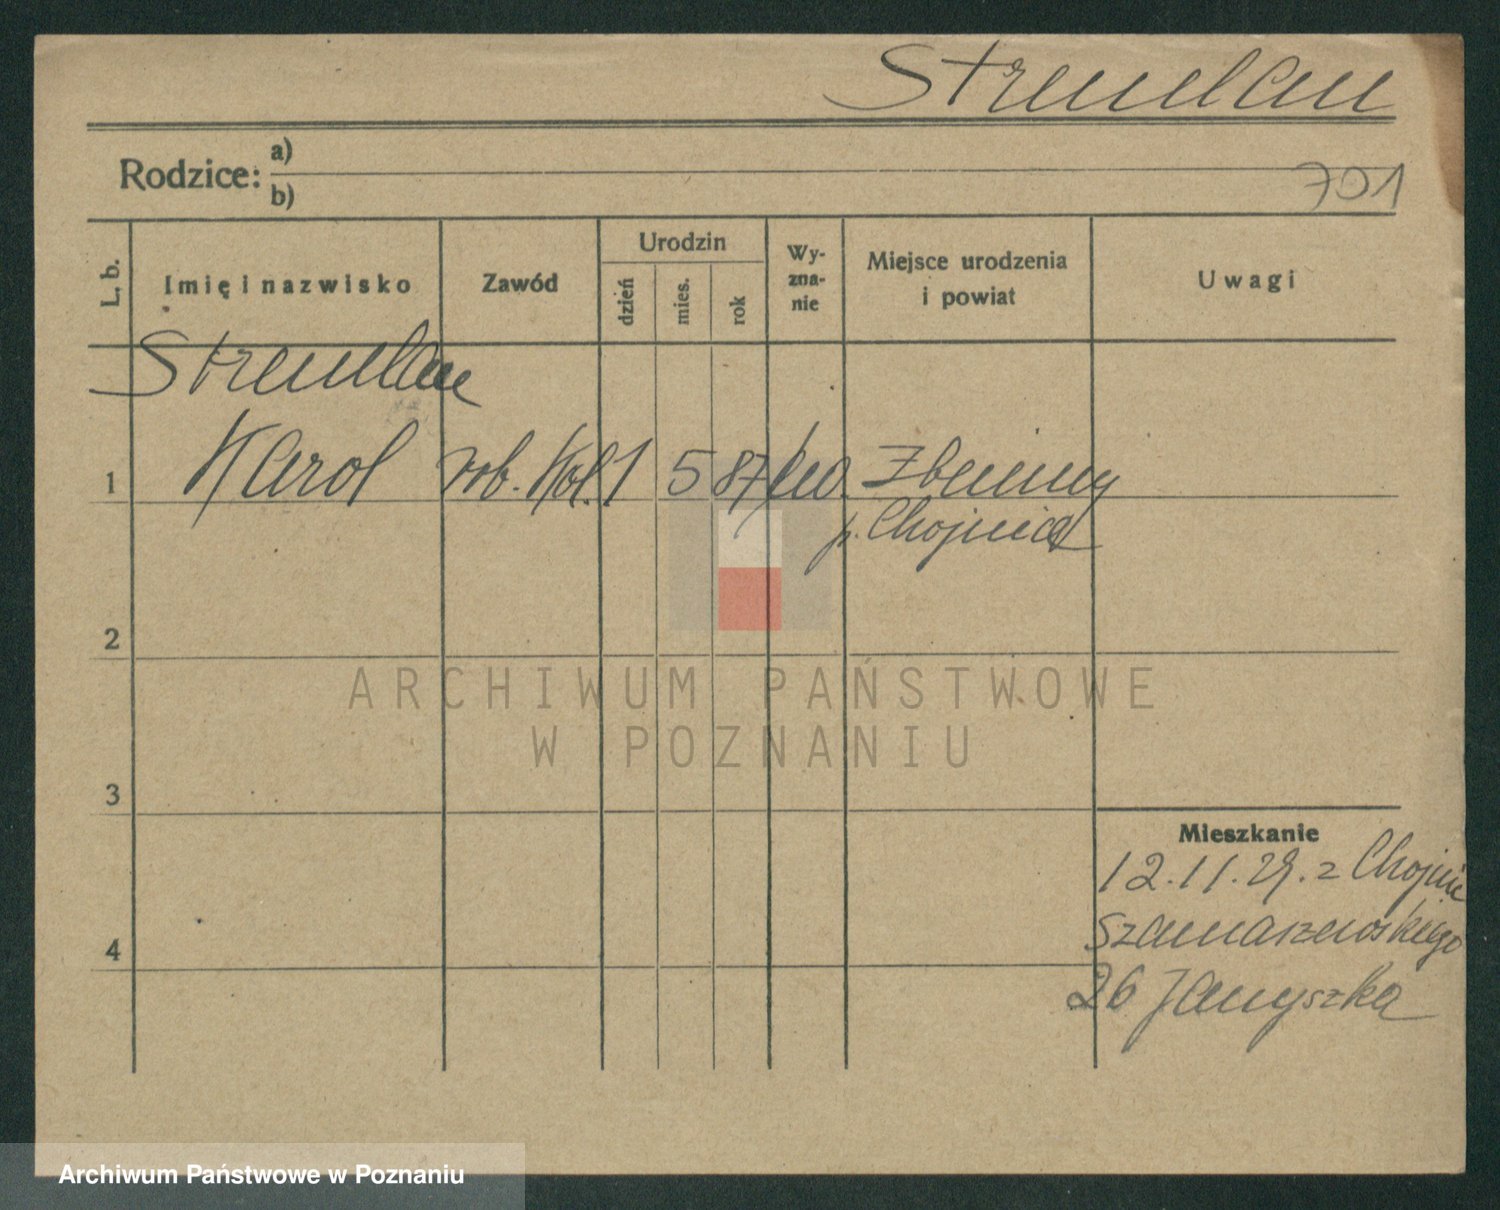 Stremlau
Rodzice: a)
b)
701
L. b.
Imię i nazwisko
Zawód
Urodzin
dzień
mies.
rok
Wy-
zna-
nie
Miejsce urodzenia
i powiat
Uwagi
Stremlau
1 Karol rob. Kol. 1 5 87 Zbeniny
p. Chojnice
2
ARCHIWUM PAŃSTWOWE
W POZNANIU
3
Mieszkanie
12.11.29. z Chojnic
Szamarzewskiego
4
26 Januszka
Archiwum Państwowe w Poznaniu